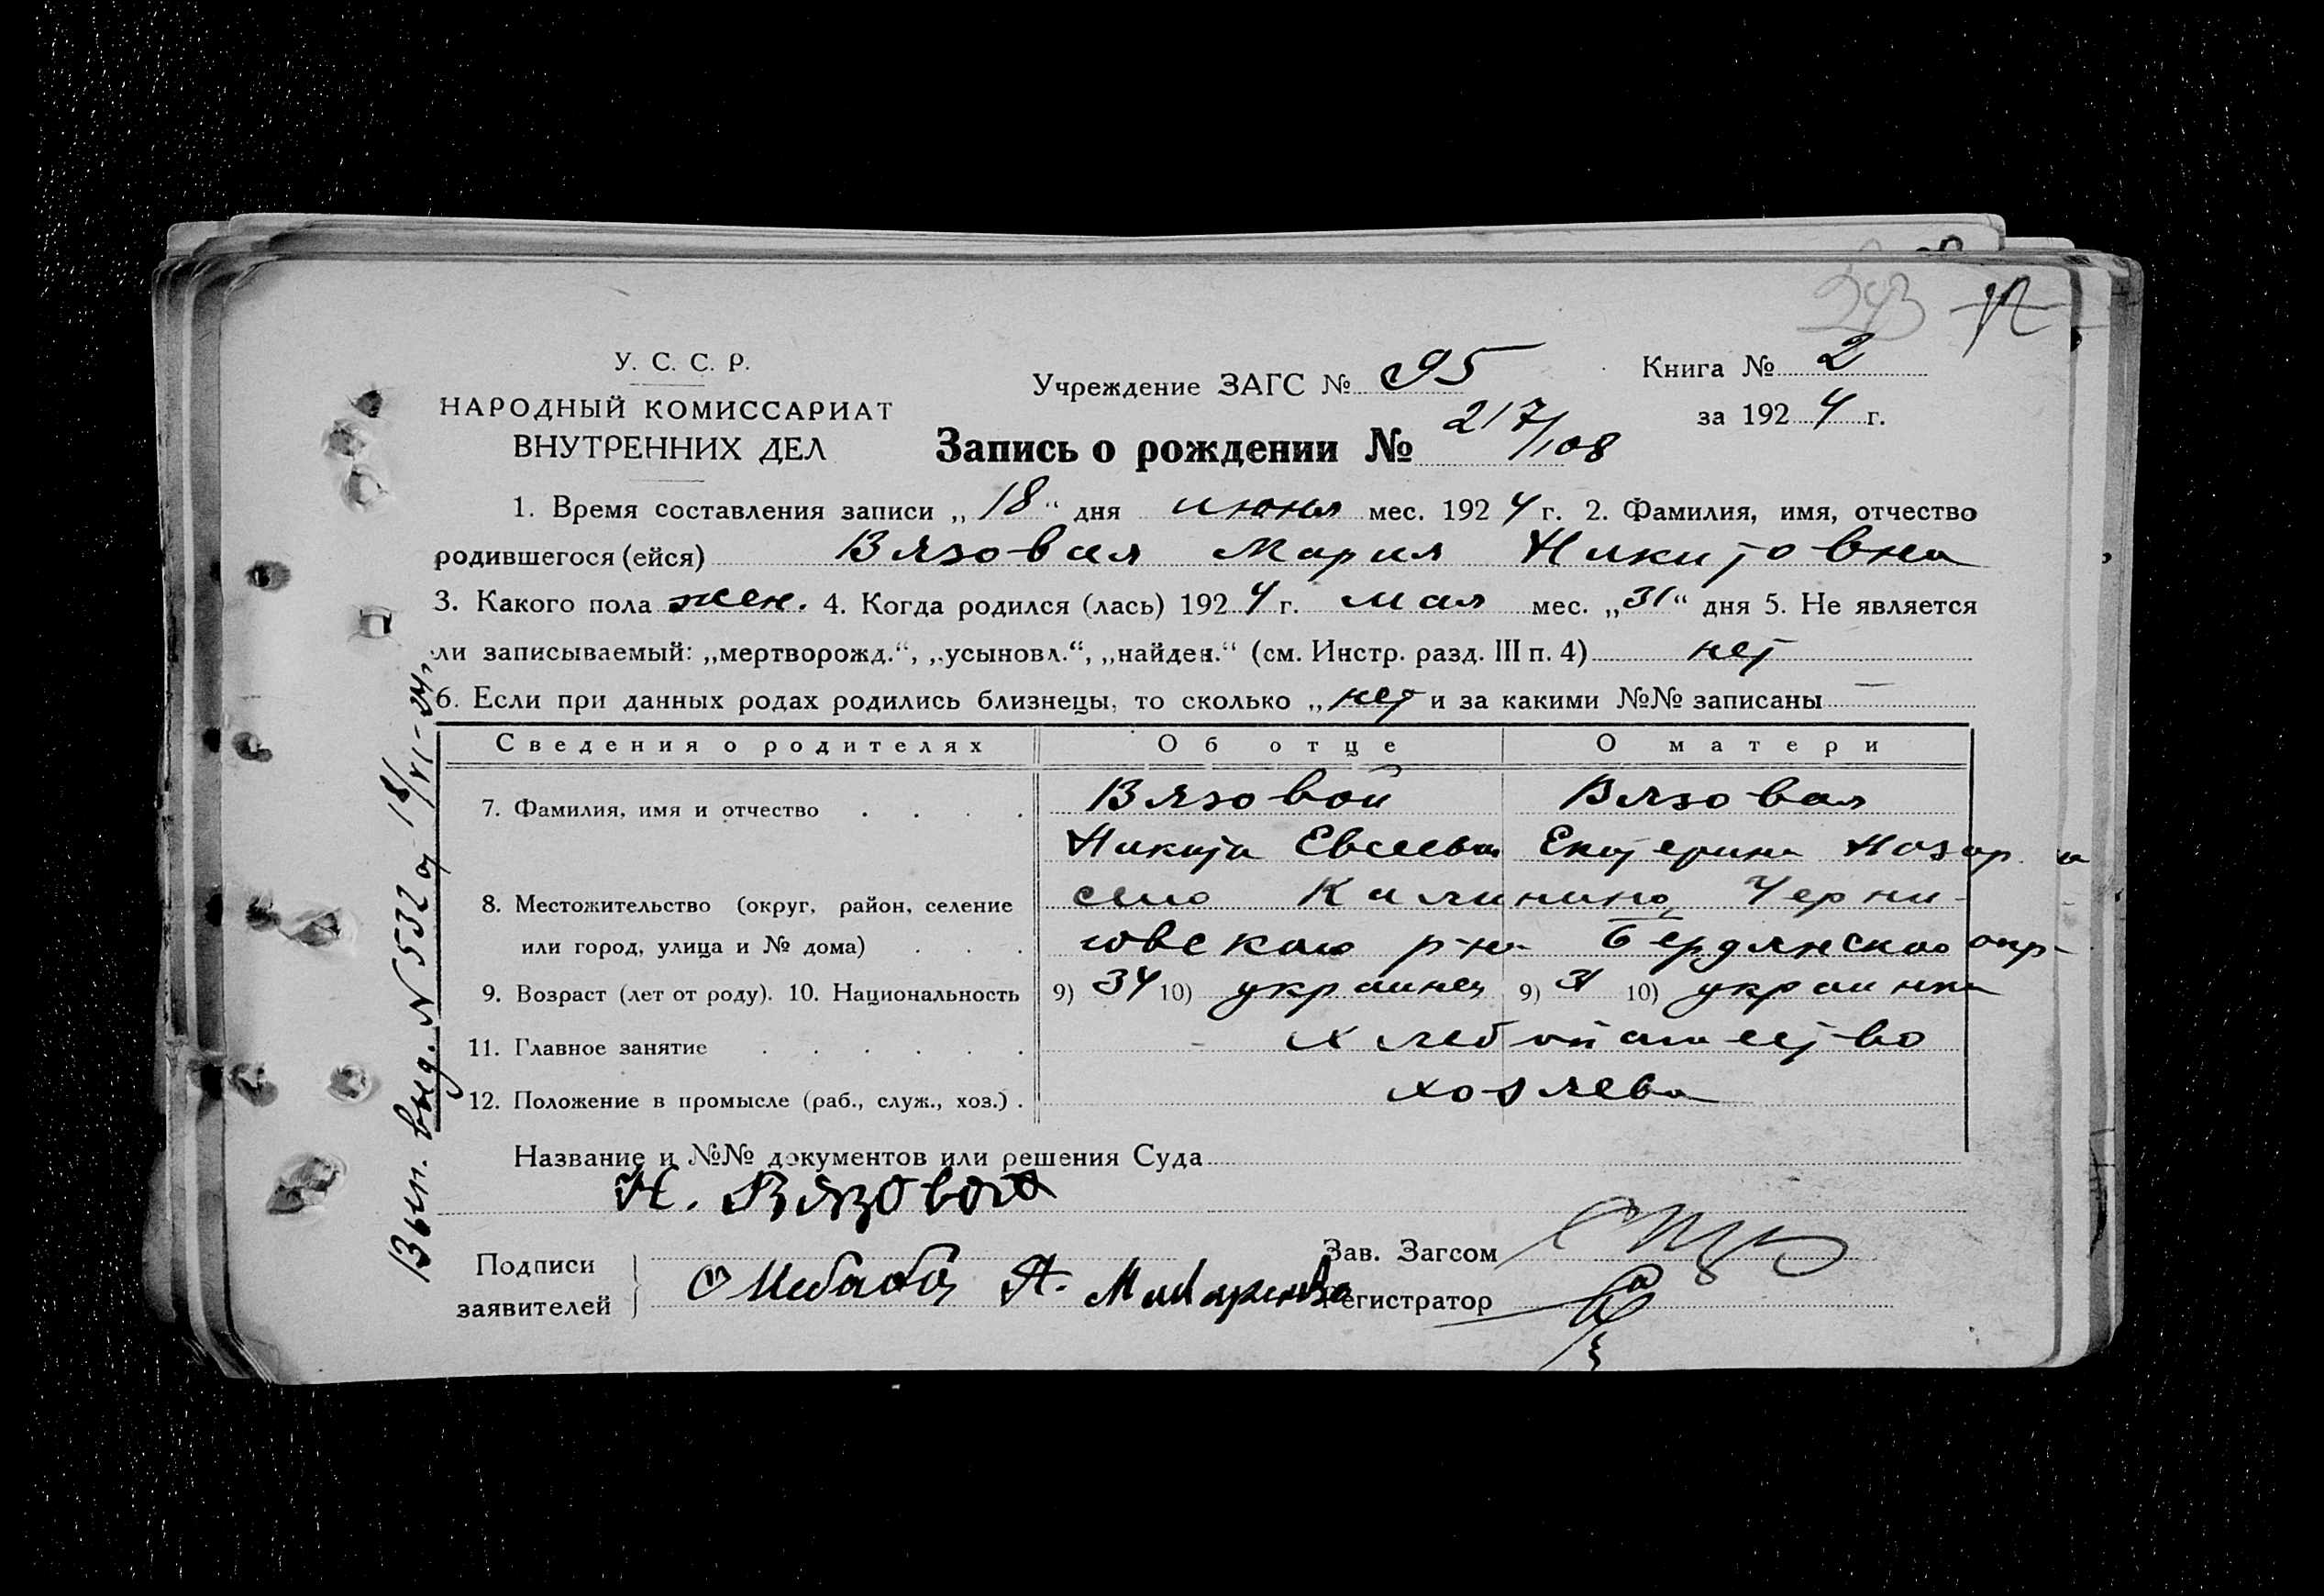 243 12
У. С. С. Р.
НАРОДНЫЙ КОМИССАРИАТ
ВНУТРЕННИХ ДЕЛ
Учреждение ЗАГС № 95
Книга № 2
за 1924 г.
Запись о рождении № 217/108
1. Время составления записи „18“ дня июня мес. 1924 г. 2. Фамилия, имя, отчество
родившегося (ейся) Вязовая Мария Никитовна
3. Какого пола жен. 4. Когда родился (лась) 1924 г. мая мес. „31“ дня 5. Не является
ли записываемый: „мертворожд.“, „усыновл.“, „найден.“ (см. Инстр. разд. III п. 4) нет
6. Если при данных родах родились близнецы, то сколько „нет и за какими №№ записаны —
Сведения о родителях Об отце О матери
7. Фамилия, имя и отчество . . . . Вязовой Вязовая
Никита Евсеевич Екатерина Назар
8. Местожительство (округ, район, селение село Калинино, Черни-
или город, улица и № дома) . . . говского р-на Бердянского окр-
9. Возраст (лет от роду). 10. Национальность 9) 34 10) украинец 9) 31 10) украинка
11. Главное занятие . . . . . . хлебопашество
12. Положение в промысле (раб., служ., хоз.) . хозяева
Название и №№ документов или решения Суда
Н. Вязовой
Подписи
заявителей
Зав. Загсом
Регистратор
Вып. выд. № 532 от 18/VI-24 г.